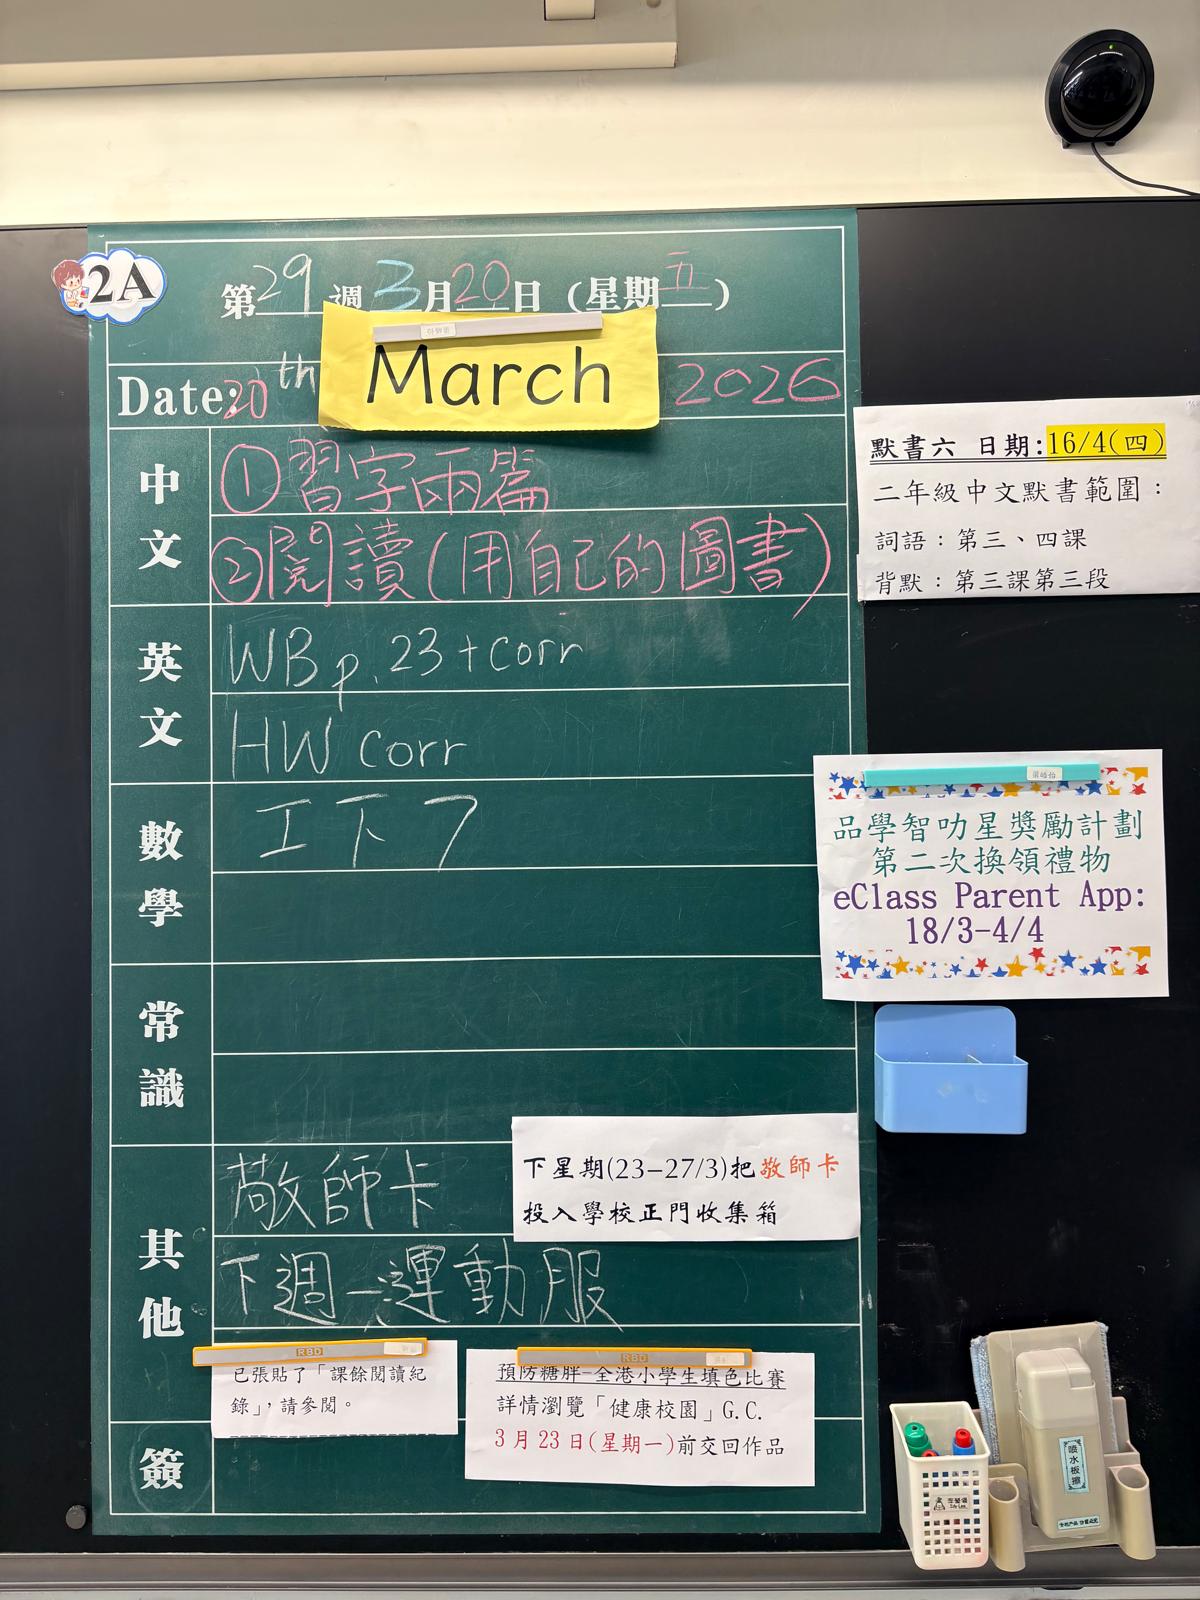 2A
第29週 3月20日 (星期五)
Date: 20th March 2026
中文
①習字兩篇
②閱讀(用自己的圖書)
英文
WB p.23+corr
HW corr
數學
工下7
常識
其他
敬師卡
下星期(23-27/3)把敬師卡
投入學校正門收集箱
下週一運動服
RBD
已張貼了「課餘閱讀紀
錄」,請參閱。
RBD
預防糖胖-全港小學生填色比賽
詳情瀏覽「健康校園」G.C.
3月23日(星期一)前交回作品
簽
默書六 日期:16/4(四)
二年級中文默書範圍:
詞語:第三、四課
背默:第三課第三段
品學智叻星獎勵計劃
第二次換領禮物
eClass Parent App:
18/3-4/4
噴水板擦